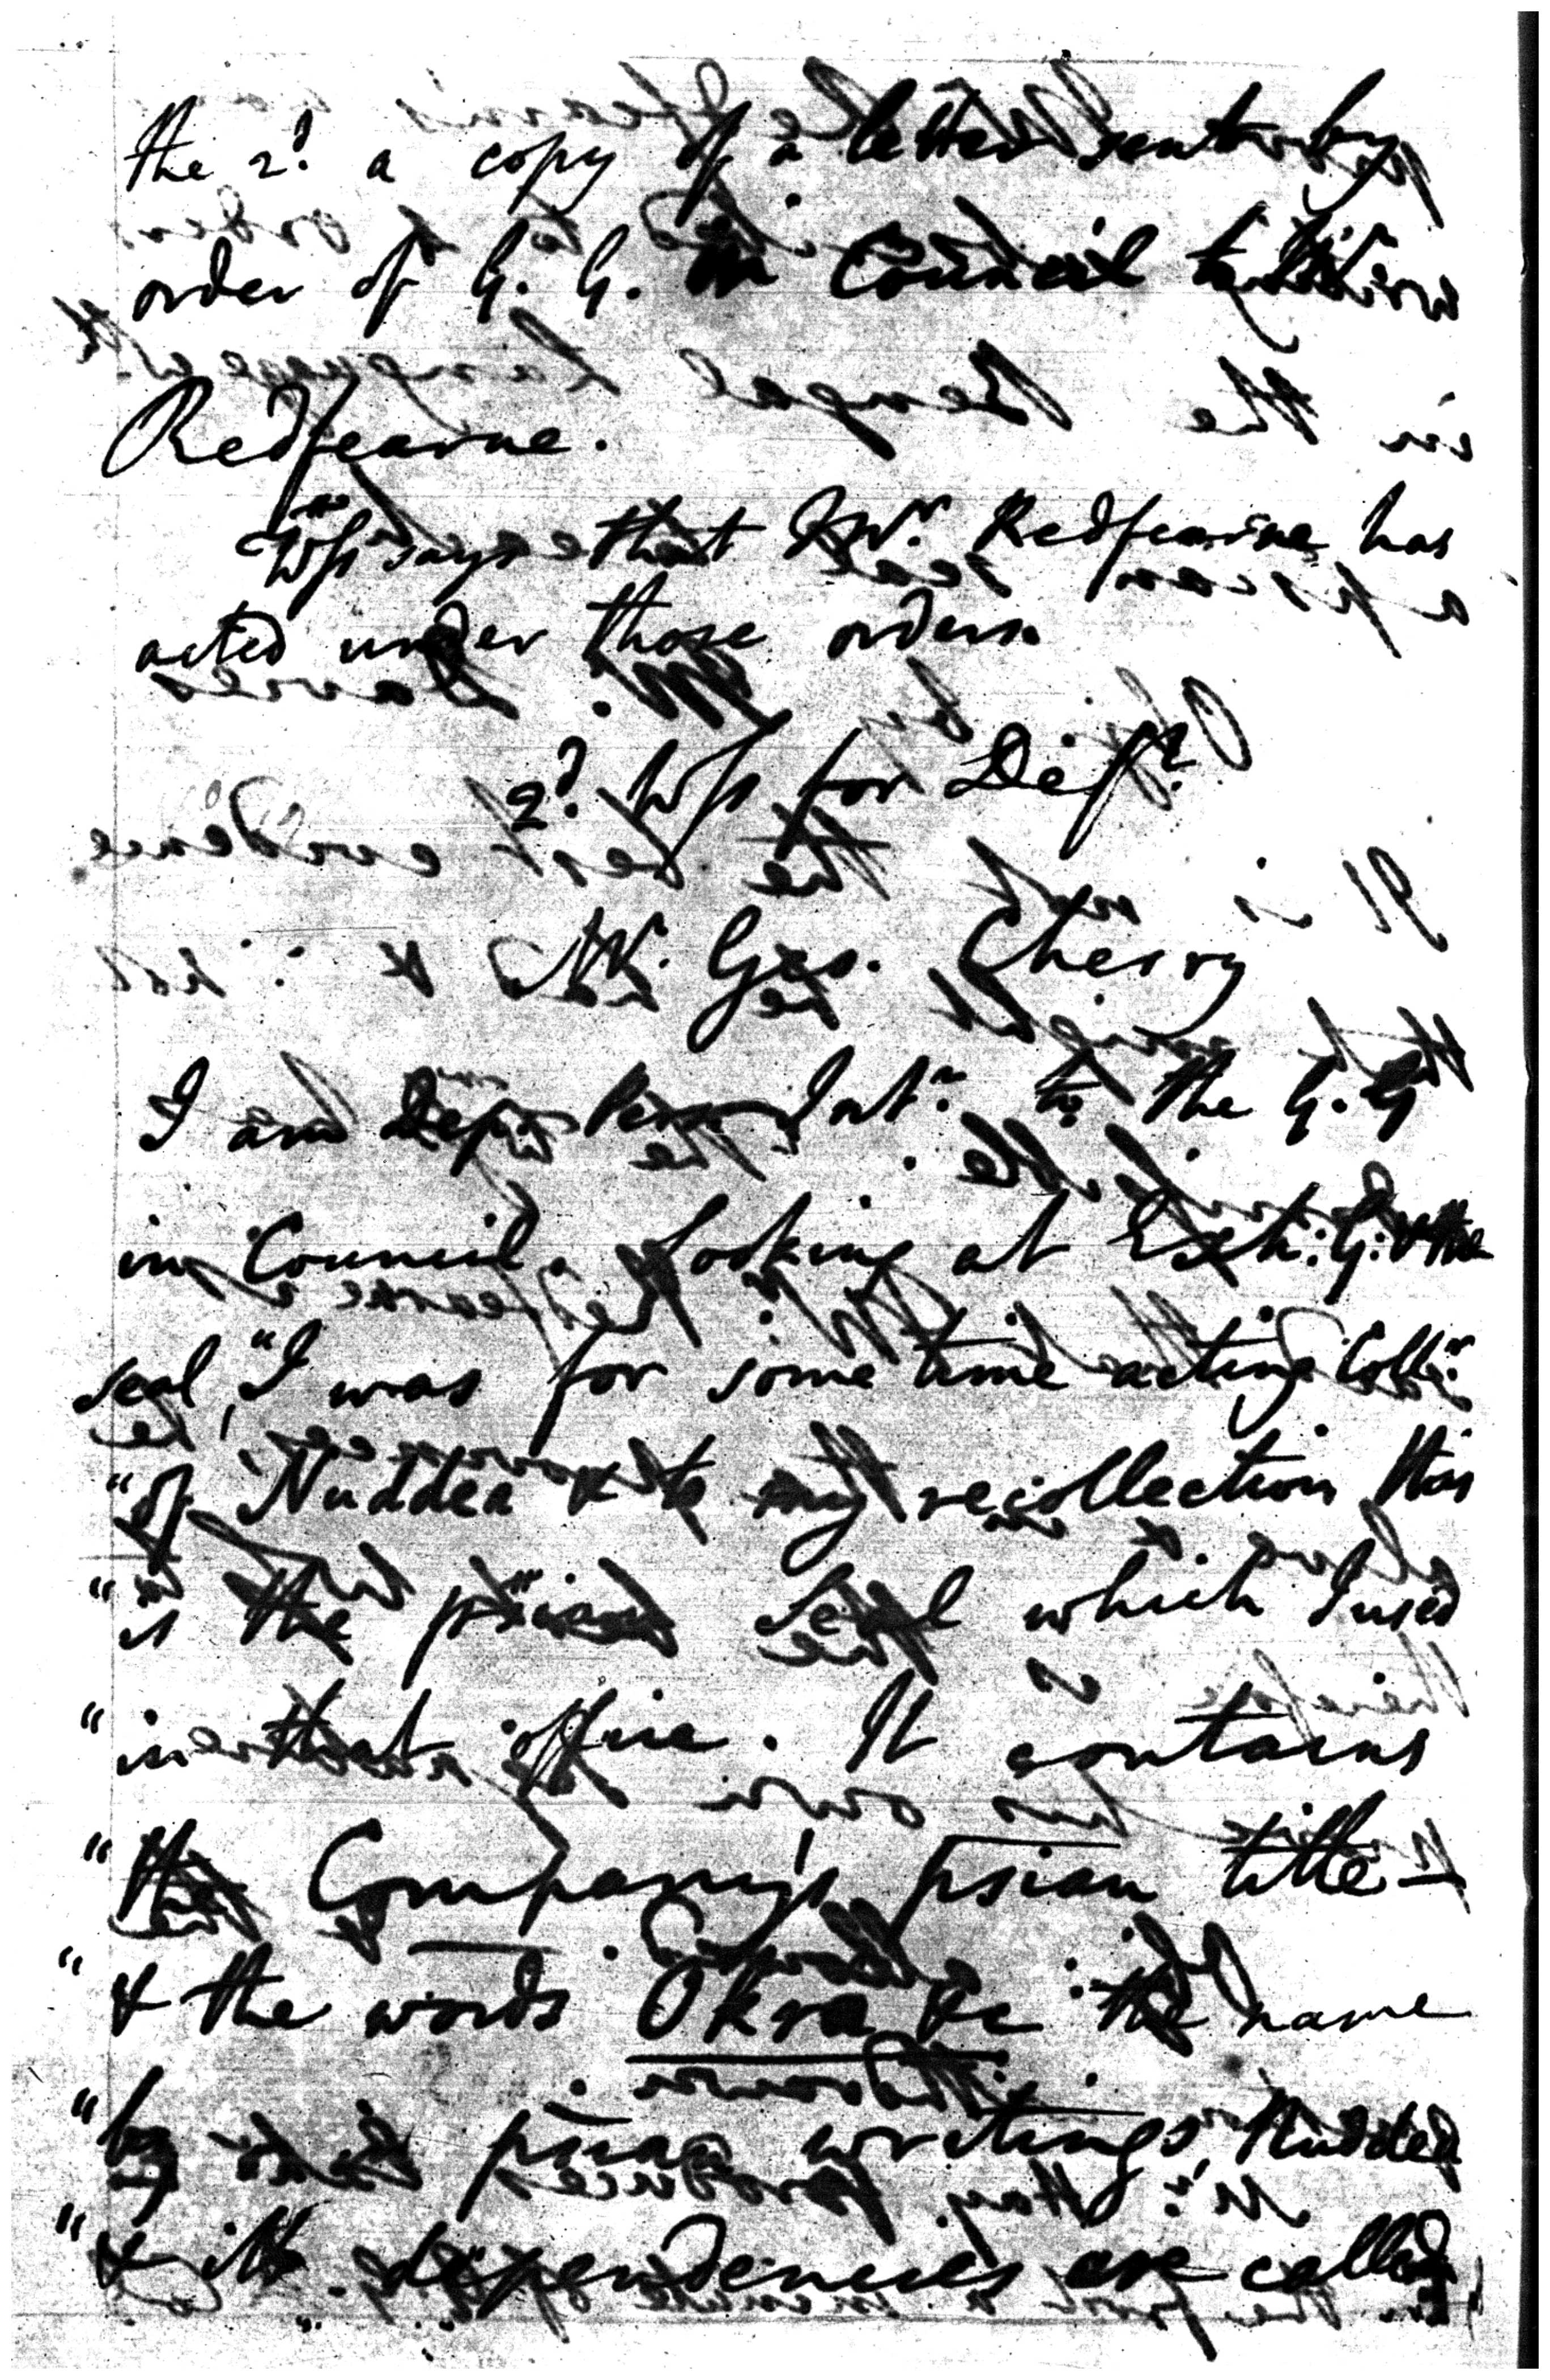 the 2d. a copy of a letter sent by
order of G. G. in Council to Mr
Redfearne.
Wss says that Mr. Redfearne has
acted under those orders.
2d. Wss for Deft.
Mr. Geo. Cherry
I am Depy Persn Intr. to the G. G
in Council. Looking at Exh: G: & the
seal, "I was for some time acting Collr.
"of Nuddea & to my recollection this
"is the psian Seal which I used
"in that office. It contains
"the Company's psian title —
"& the words Okra &c the name
"by psian writings Nuddea
"& its dependencies are called